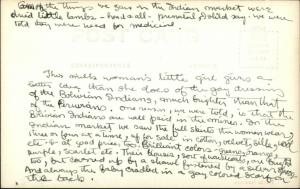 Among the things we saw in the Indian market were
dried little lambs - hard all - prenatal, I'd say. We were
told they were for medicine.
POST CARD
This mills woman's little girl gives a
better idea than she does of the gay dressing
of the Bolivian Indians, much brighter than that
of the Peruvians, one reason, we were told, is that the
Bolivian Indians are well paid in the mines. In the
Indian market we saw the full skirts the women wear,
three or four at a time, up for sale in cotton, velvet, silk,
etc. & at good prices, too. Brilliant colors - green,
purple, scarlet etc. Their blouses, sort of
too, but covered up by a shawl fastened by a silver
And always the baby cradled in a gay colored scarf on
the back.